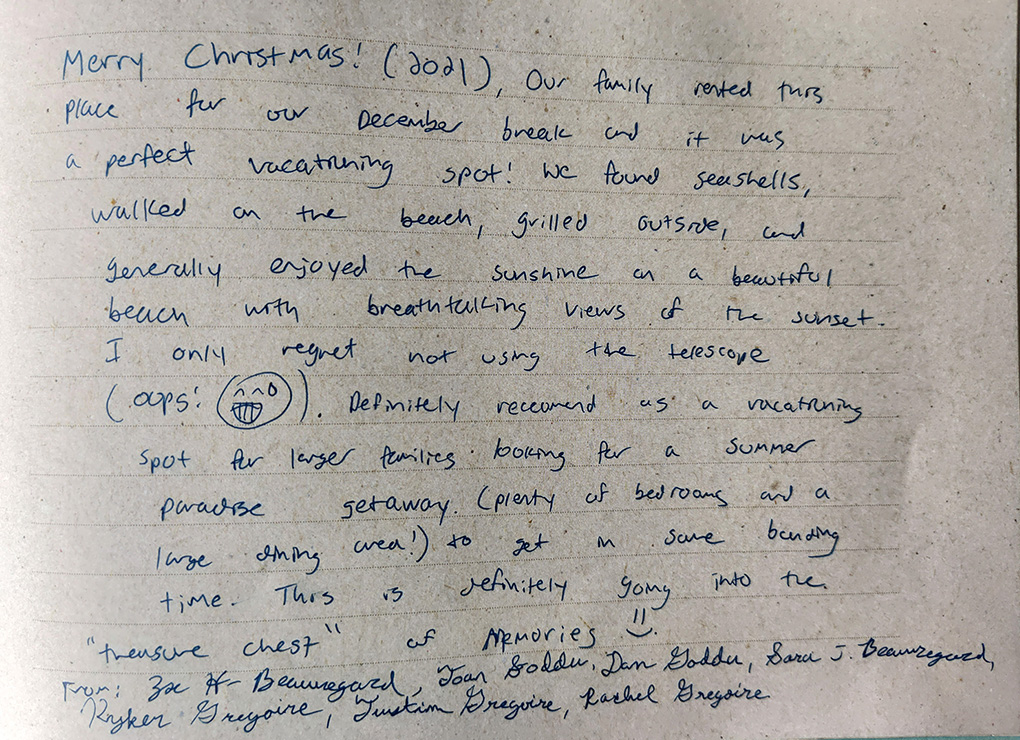 Merry Christmas! (2021), Our family rented this
place for our December break and it was
a perfect vacationing spot! We found seashells,
walked on the beach, grilled outside, and
generally enjoyed the sunshine on a beautiful
beach with breathtalking views of the sunset.
I only regret not using the telescope
(oops! ). Definitely reccomend as a vacationing
spot for larger families looking for a summer
paradise getaway. (plenty of bedrooms and a
large dining area!) to get in some bonding
time. This is definitely going into the
"treasure chest" of Memories
From: H- Beauregard, Joan Goddu, Dan Goddu, Sara J. Beauregard,
Ryker Gregoire, Gregoire, Rachel Gregoire